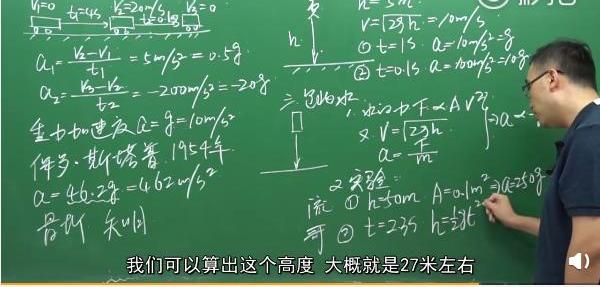 V₁=0 t₁=4s V₂=20m/s t₂=0.1s V₃=0
a₁=(V₂-V₁)/t₁=5m/s²=0.5g
a₂=(V₃-V₂)/t₂=-200m/s²=-20g
重力加速度 a=g=10m/s²
约翰·斯塔普 1954年
a=46.2g=462m/s²
骨折 失明
h
h=5m
V=√2gh=10m/s
① t=1s a=10m/s²=g
② t=0.1s a=100m/s²=10g
三、
1. 水阻力 F∝AV²
又 V=√2gh
a=F/m
⇒a∝
2 实验:
① h=50m A=0.1m²⇒a=250g
② t=2.3s h=½gt²
我们可以算出这个高度 大概就是27米左右